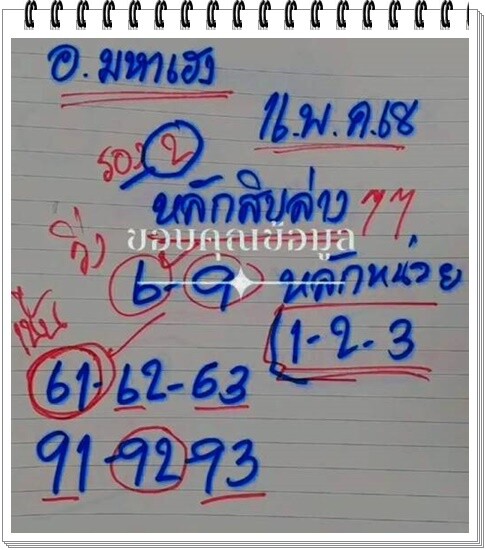 อ.มหาเฮง
1 เม.พ.ค.68
รอง 2
หลักสิบล่าง
ขอบคุณข้อมูล
วิ่ง
6-9 หลักหน่วย
เน้น
1-2-3
61-62-63
91-92-93